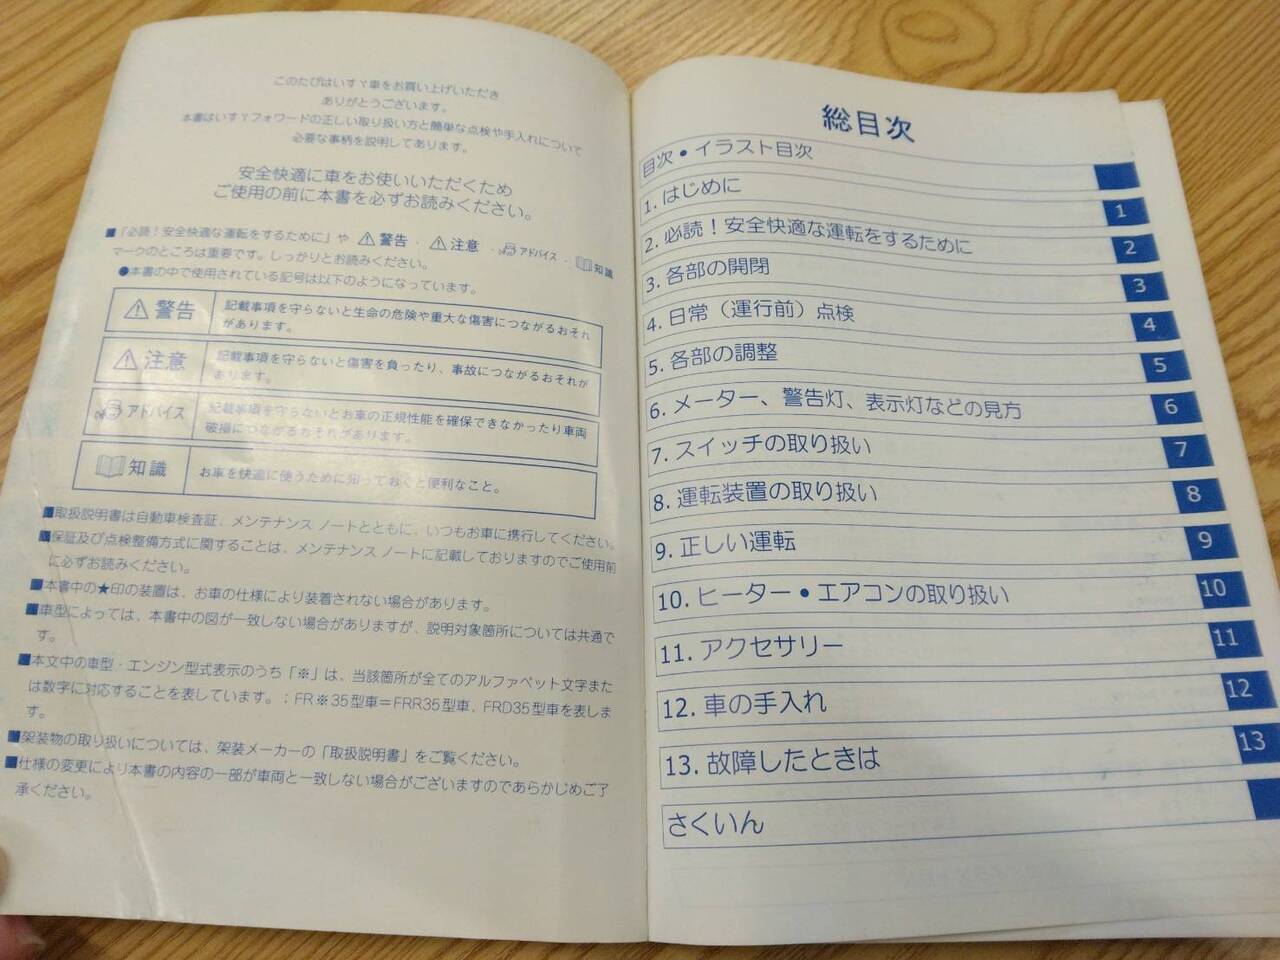 このたびはいすゞ車をお買い上げいただき
ありがとうございます。
本書はいすゞフォワードの正しい取り扱い方と簡単な点検や手入れについて
必要な事柄を説明してあります。
安全快適に車をお使いいただくため
ご使用の前に本書を必ずお読みください。
■「必読！安全快適な運転をするために」や ⚠警告・⚠注意・アドバイス・知識
マークのところは重要です。しっかりとお読みください。
●本書の中で使用されている記号は以下のようになっています。
⚠警告 記載事項を守らないと生命の危険や重大な傷害につながるおそれ
があります。
⚠注意 記載事項を守らないと傷害を負ったり、事故につながるおそれが
あります。
アドバイス 記載事項を守らないとお車の正規性能を確保できなかったり車両
破損につながるおそれがあります。
知識 お車を快適に使うために知っておくと便利なこと。
■取扱説明書は自動車検査証、メンテナンス ノートとともに、いつもお車に携行してください。
■保証及び点検整備方式に関することは、メンテナンス ノートに記載しておりますのでご使用前
に必ずお読みください。
■本書中の★印の装置は、お車の仕様により装着されない場合があります。
■車型によっては、本書中の図が一致しない場合がありますが、説明対象箇所については共通で
す。
■本文中の車型・エンジン型式表示のうち「※」は、当該箇所が全てのアルファベット文字また
は数字に対応することを表しています。；FR※35型車＝FRR35型車、FRD35型車を表しま
す。
■架装物の取り扱いについては、架装メーカーの「取扱説明書」をご覧ください。
■仕様の変更により本書の内容の一部が車両と一致しない場合がございますのであらかじめご了
承ください。
総目次
目次・イラスト目次
1. はじめに 1
2. 必読！安全快適な運転をするために 2
3. 各部の開閉 3
4. 日常（運行前）点検 4
5. 各部の調整 5
6. メーター、警告灯、表示灯などの見方 6
7. スイッチの取り扱い 7
8. 運転装置の取り扱い 8
9. 正しい運転 9
10. ヒーター・エアコンの取り扱い 10
11. アクセサリー 11
12. 車の手入れ 12
13. 故障したときは 13
さくいん